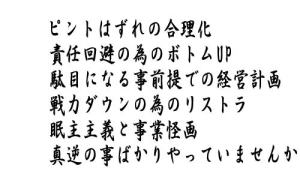 ピントはずれの合理化
責任回避の為のボトムUP
駄目になる事前提での経営計画
戦力ダウンの為のリストラ
眠主主義と事業怪画
真逆の事ばかりやっていませんか